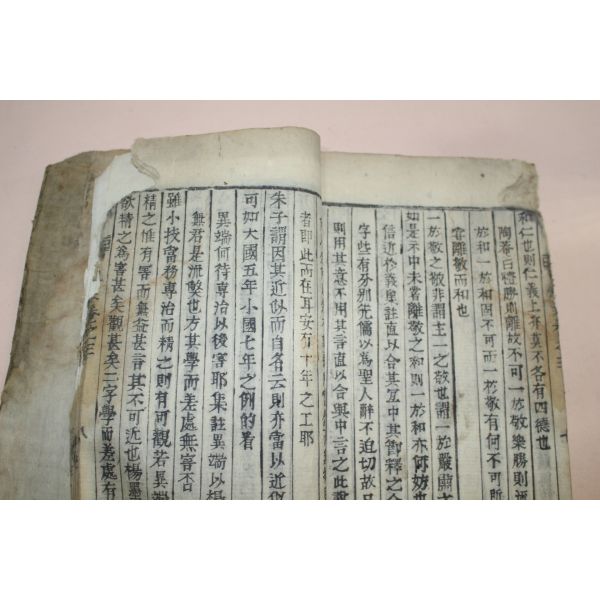 和仁也則仁義上亦莫不各有四德也
陶庵曰禮勝則離故不可一於敬樂勝則流
於和一於和固不可而一於敬有何不可所
害離敬而和也
一於敬之敬非謂主一之敬也謂一於嚴肅之
如是亦中未嘗離敬之和則一於和亦何妨也
信近於義里註直以合其宜中其節釋之今
字些有分別先儒以為聖人辭不迫切故只
則用其意不用其言直以合與中言之此
者即此而在耳安有十年之工耶
朱子謂因其近似而自名云則亦當以近似
可如大國五年小國七年之例的看
異端何待專治以後害耶集註異端以楊
無君是流弊也方其學而差處無害否
雖小技當務專治而精之則有可觀若異端
精之惟有害而無益甚言其不可近也楊墨
欲精之為害甚矣觀甚矣二字學而差處有